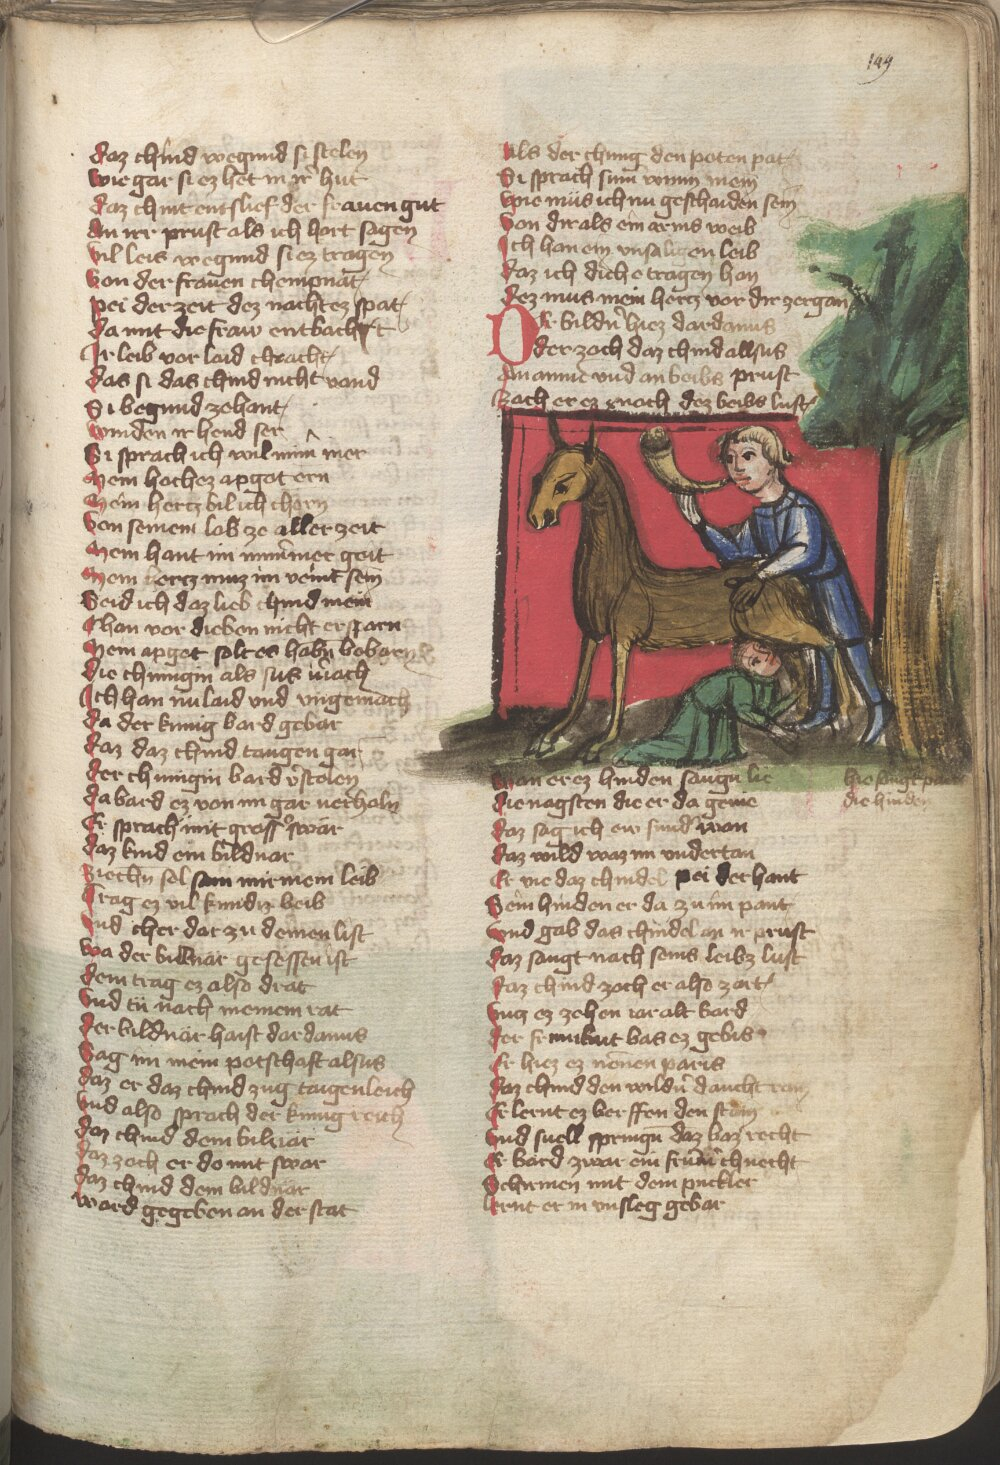 149
daz chind wegund si stelen
wie gar si ez het in ir hut
daz chint entslief der frauen gut
an irr prust als ich hort sagen
vil leis wegund si ez tragen
von der frauen chempnat
pei der zeit dez nachtez spat
da mit die fraw entbacht
Ir leib vor laid chracht
das si das chind nicht vand
Si begund zehant
winden ir hend ser
Si sprach ich wil nim mer
Mein hochez apgot ern
Mein hertz wil ich chern
von seinem lob ze aller zeit
Mein hant im nimmer geit
Mein hertz muz im veint sein
Seid ich daz lieb chind mein
Chan vor dieben nicht ersparn
Mein apgot solt es habn bebarn
die chunigin als sus
Ich han nu laid vnd vngemach
da der kunig bard gebar
daz daz chind taugen gar
der chunigin bard vstolen
da bard ez von im gar verholn
Er sprach mit grosser swär
daz kind ein bildnar
ziechn sol sam mir mein leib
Trag ez vil kundiz beib
vnd cher dar zu deinen list
wa der bildnär gesessen ist
dem trag ez also drat
vnd tü nach meinem rat
der bildnär haist dardanus
Sag im mein potschaft alsus
daz er daz chind zug taugenleich
vnd also sprach der kunig reich
daz chind dem bildnär
daz zoch er do mit swar
daz chind dem bildnär
ward gegeben an der stat
als der chung den poten pat
Si sprach sun mein
wie müs ich nu geschaiden sein
von dir als ein arms weib
Ich han ein vnsaligen leib
daz ich dich e tragen han
dez mus mein hertz vor dir zergan
Der bildnr hiez dardanus
der zoch daz chind allsus
an amme vnd an beibs prust
zach er ez noch dez beibs lust
wan er ez hinden saugn lie
die nagsten die er da gevie
daz sag ich ew sunder wan
daz wild waz im vndertan
Er vie daz chindel pei der hant
Sein hinden er da zu im pant
vnd gab das chindel an ir prust
daz saugt nach seins leibz lust
daz chind zoch er also zart
vntz ez zehen iar alt bard
der bas ez gebis
Er hiez ez nennen paris
daz chind den wildn daucht
Er lernt ez berffen den stain
vnd snell springn daz baz recht
Er bard zwar ein frum chnecht
Schirmen mit dem puckler
lernt er in vnsleg gebar
hie saugt paris
die hinden